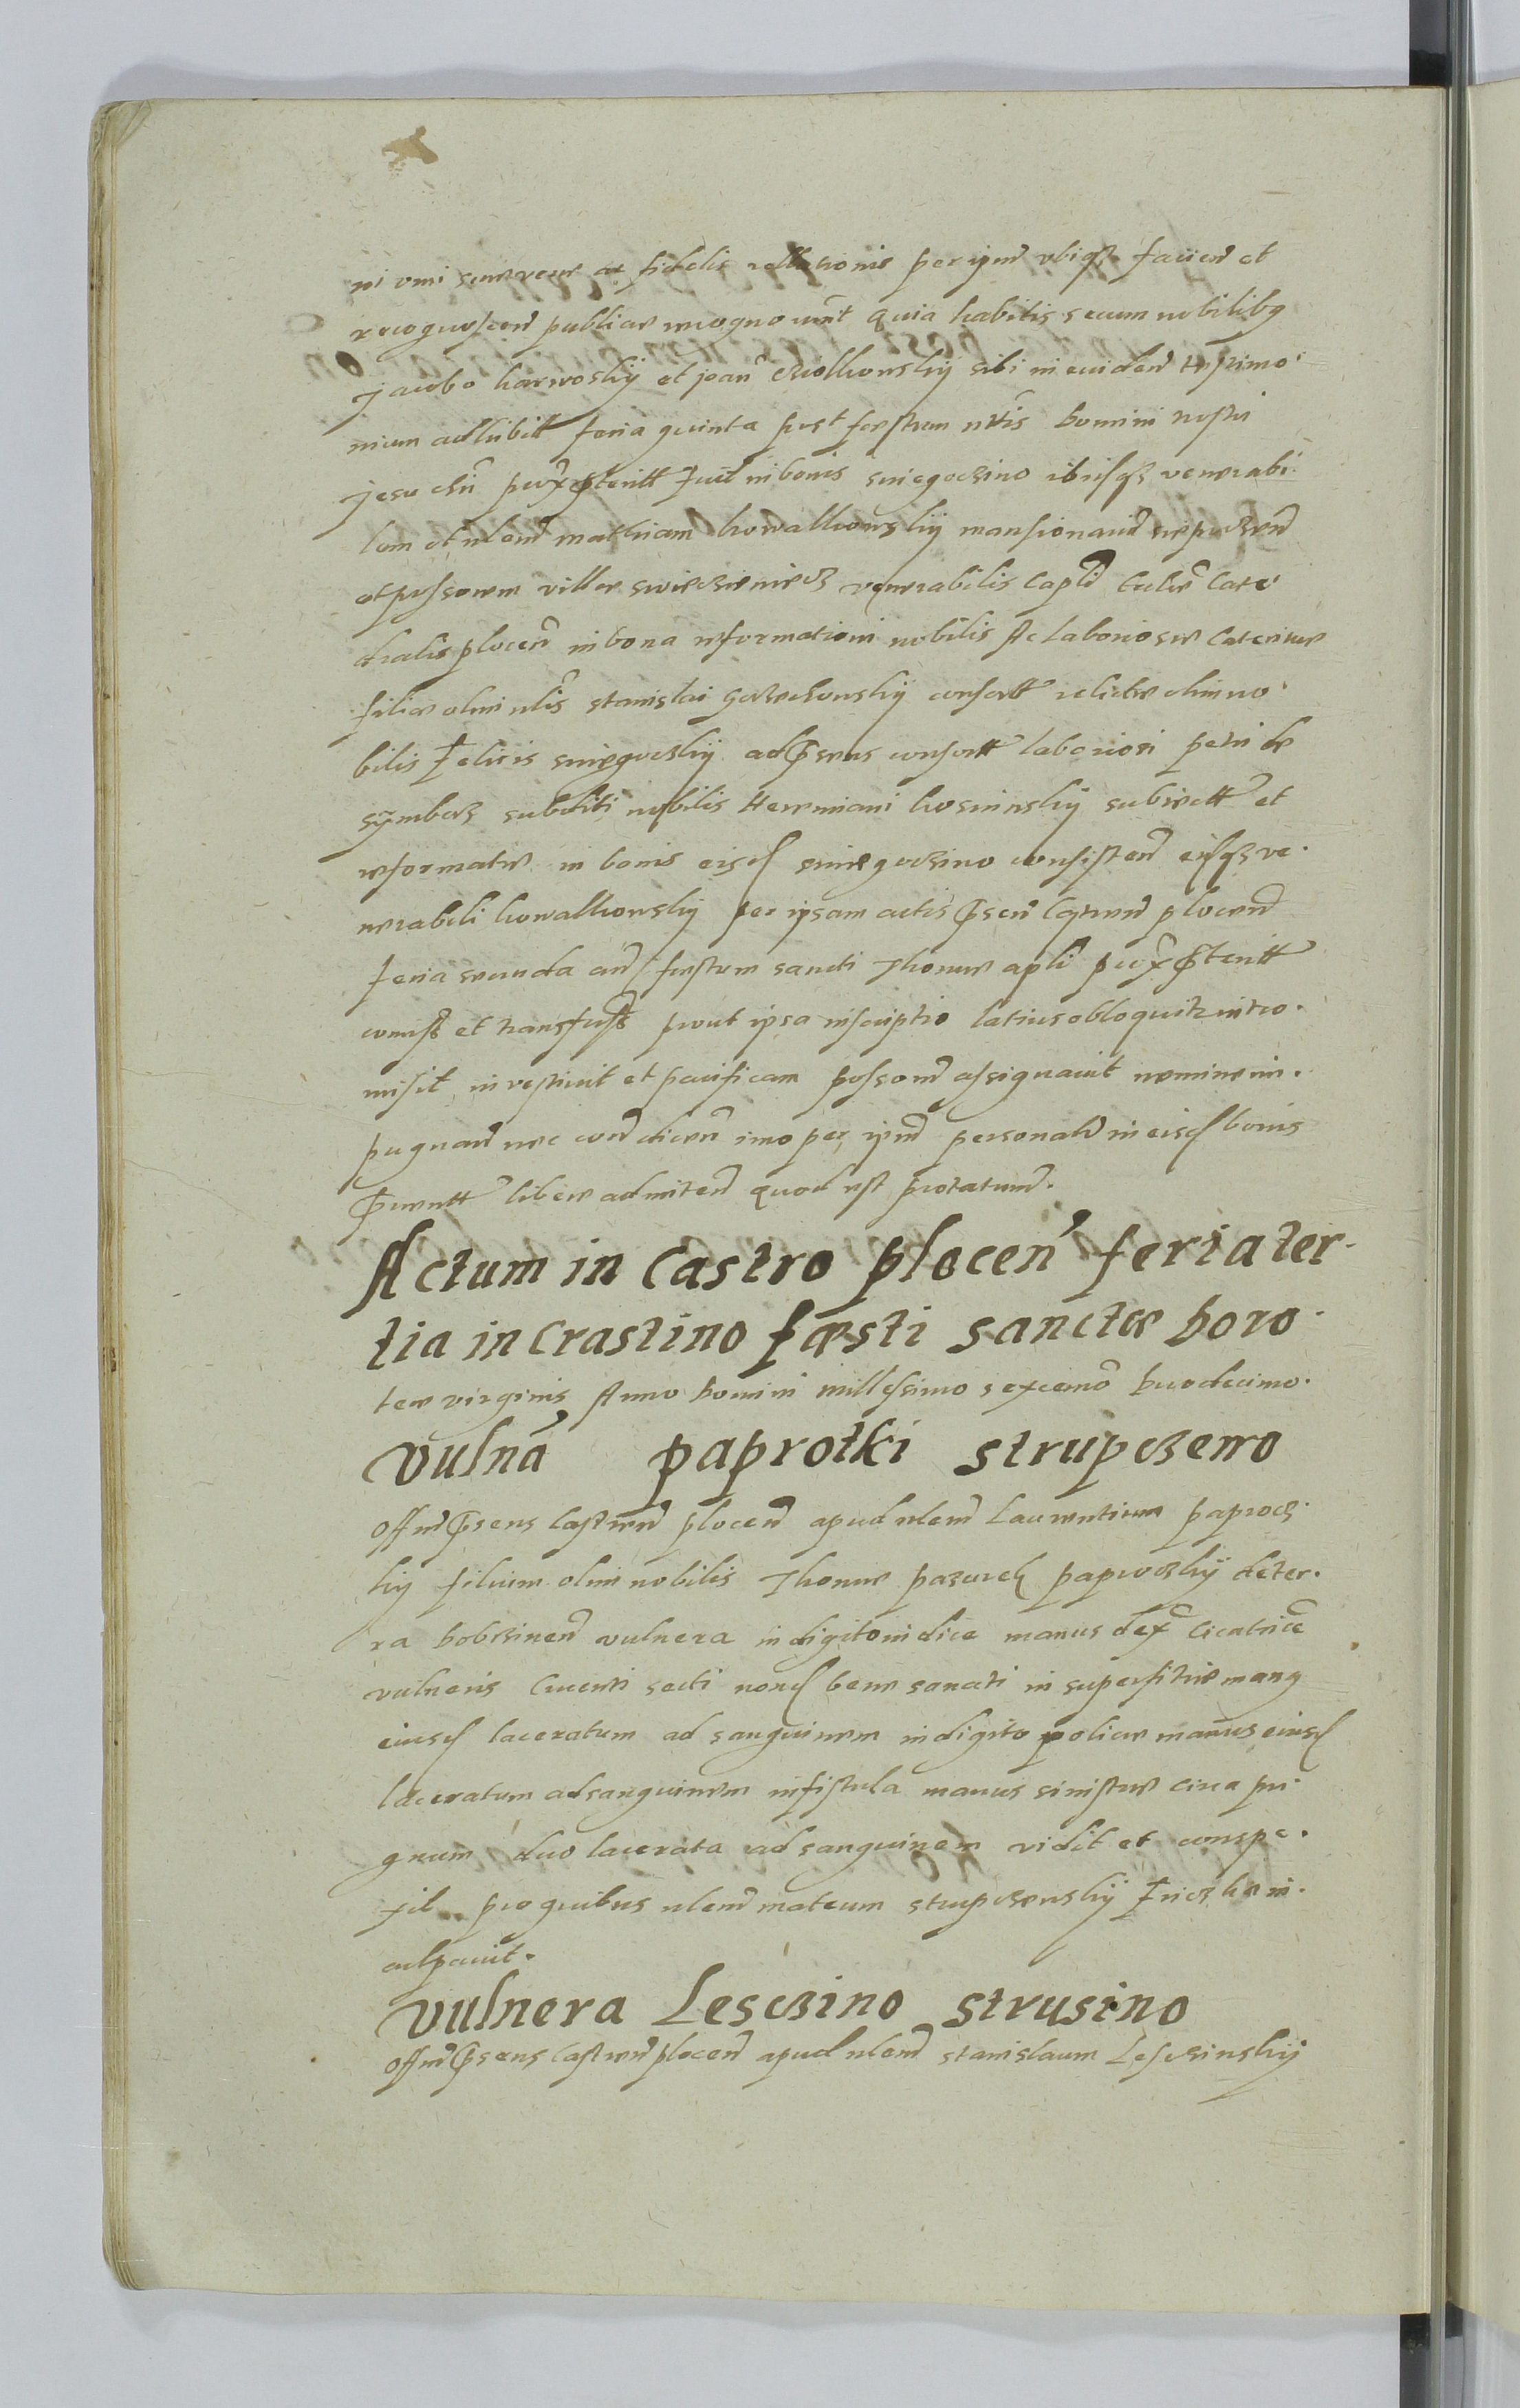 ni omni sincerae ac fidelis relationis per ipm̃ ubiqз faciend̃ et
recognoscend̃ publice recognovit quia habitis secum nobilibꝰ
Jacobo karwoskij et Joañ sibi in evideñ testimo
nium adhibit̃ feria quinta post festum nt̃is Domini nostri
Jesu chri prox̃ pr̃terit̃ fuit in bonis sniegoczino ibiqз venerabi
lem et nlem̃ mathiam kowalkowskij mansionariũ
et possorem villae venerabilis capli eccliae cate
dralis plocen̄ in bona reformationi nobilis Ac laboriosae Caterinae
filiae olim nlis stanislai consort̃ relictae olim no
bilis felicis sniegockij ad pr̃sens consort̃ laboriosi petri de
subditi nobilis kosminskij et
reformatae in bonis eisd̃ sniegoczino consisteñ eiqз ve
nerabili kowalkowskij per ipsam actis pr̃sen̄ Castren̄ plocen̄
feria secunda an̄ festum sancti Thomae apli prox̃ pr̃terit̃
comiss̃ et transfuss̃ prout ipsa inscriptio latius obloquitr intro
misit investivit et pacificam possom̃ assignavit nemine im
pugnan̄ nec con̄dicen̄ imo per ipm̃ personalr̃ in eisd̃ bonis
libere admiten̄ quod est protatum̃.
Actum in Castro plocen̄ feria ter
tia in Crastino festi sanctae Doro
teae virginis Anno Domini millesimo sexcen̄o Duodecimo.
Vulnã paprotki strupczewo
Offm̃ pr̃sens Castren̄ plocen̄ apud nlem̃ Laurentium paproc
kij filium olim nobilis Thomae pazurek paprockij de ter
ra Dobrzinen̄ vulnera in digito indice manus dex̃ cicatricẽ
vulneris cruenti secti nond̃ bene sanati in superficie manꝰ
eiusd̃ laceratum ad sanguinem in digito police manus eiusd̃
laceratum ad sanguinem in fistula manus sinistrae circa pu
gnum duo lacerata ad sanguinem vidit et conspe
xit pro quibus nlem̃ mateum strupczewskij in
culpavit.
Vulnera Lesczino strusino
Offm̃ pr̃sens Castren̄ plocen̄ apud nlem̃ stanislaum Lesczinskij